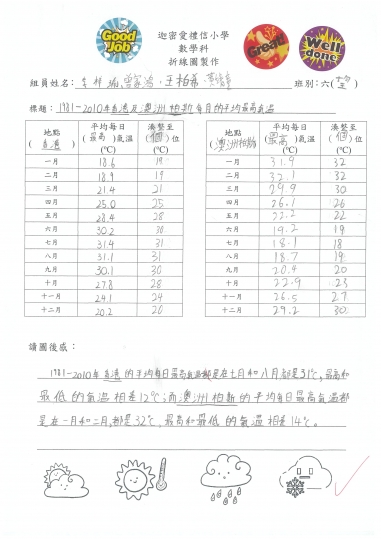 Good Job
迦密愛禮信小學
數學科
折線圖製作
Great!
Well done
組員姓名： 王柏希
班別：六( )
標題：1981-2010年香港及澳洲柏斯每月的平均最高氣溫
地點 (香港) 平均每日 (最高)氣溫 (°C) 湊整至 (個)位 (°C)
一月 18.6 19
二月 18.9 19
三月 21.4 21
四月 25.0 25
五月 28.4 28
六月 30.2 30
七月 31.4 31
八月 31.1 31
九月 30.1 30
十月 27.8 28
十一月 24.1 24
十二月 20.2 20
地點 (澳洲柏斯) 平均每日 (最高)氣溫 (°C) 湊整至 (個)位 (°C)
一月 31.9 32
二月 32.1 32
三月 29.9 30
四月 26.1 26
五月 22.2 22
六月 19.2 19
七月 18.1 18
八月 18.7 19
九月 20.4 20
十月 22.9 23
十一月 26.5 27
十二月 29.2 30
讀圖後感：
1981-2010年香港的平均每日最高氣溫都是在七月和八月,都是31°C,最高和
最低的氣溫相差12°C；而澳洲柏斯的平均每日最高氣溫都
是在一月和二月,都是32°C,最高和最低的氣溫相差14°C。